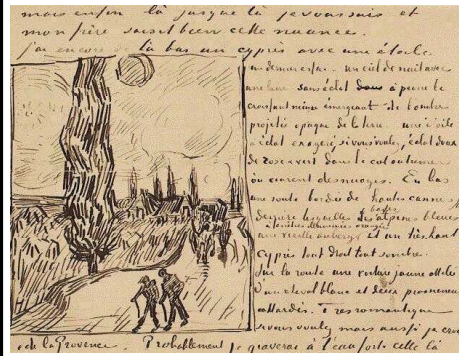 mais enfin là jusque là je voussais et
mon frère saisit bien cette nuance.
j'ai encore de là bas un cyprès avec une étoile
un dernier essai - un ciel de nuit avec
une lune sans éclat à peine le
croissant mince émergeant de l'ombre
projetée opaque de la terre - une étoile
à éclat exagéré, si vous voulez, éclat doux
de rose & vert dans le ciel outremer
où courent des nuages. En bas
une route bordée de hautes cannes
derrière lesquelles les basses alpines bleues
une vieille auberge à fenêtres illuminées orangées et un très haut
cyprès tout droit tout sombre.
Sur la route une voiture jaune attelée
d'un cheval blanc et deux promeneurs
attardés. Très romantique
si vous voulez mais aussi je crois
de la Provence. Probablement je graverai à l'eau forte celle là